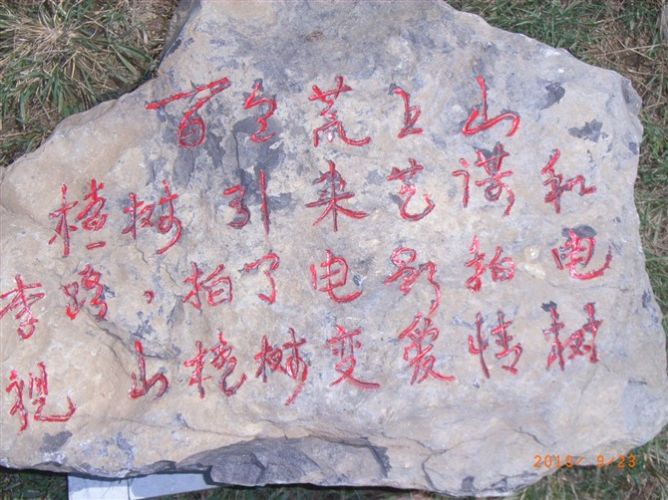 百里荒上山
楂树引来艺谋和
李路，拍了电影拍电
视 山楂树变爱情树
2015/ 9/23